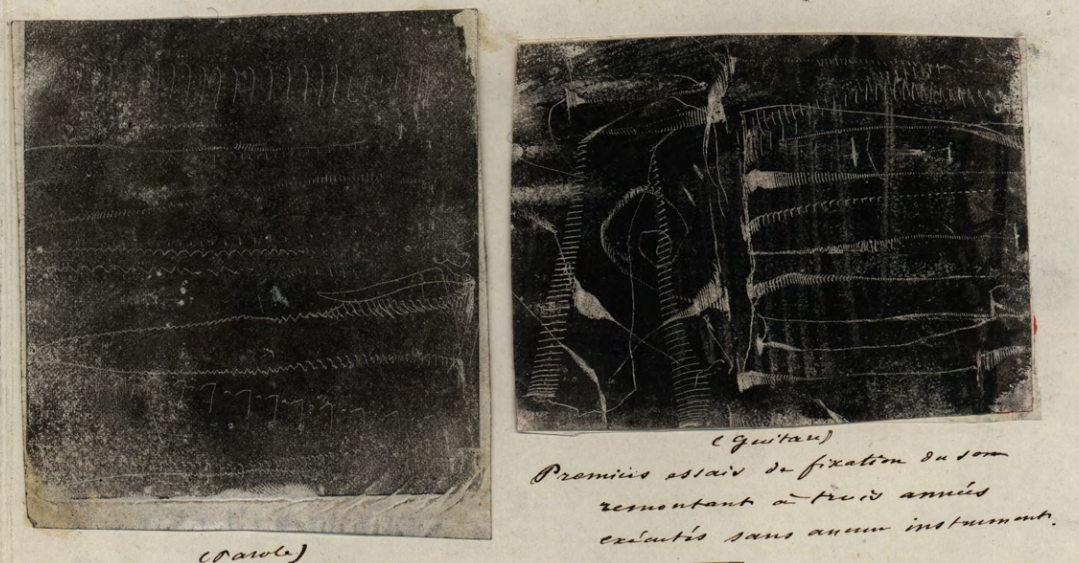 (Parole)
(Guitare)
Premiers essais de fixation du son
remontant à trois années
exécutés sans aucun instrument.